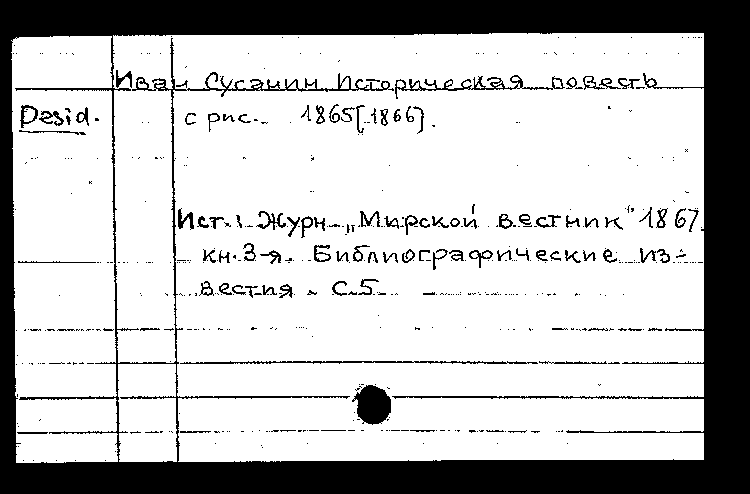 Иван Сусанин. Историческая повесть
Desid.
с рис. 1865[1866].
Ист.: Журн. „Мирской вестник" 1867.
кн. 3-я. Библиографические из-
вестия. С.5